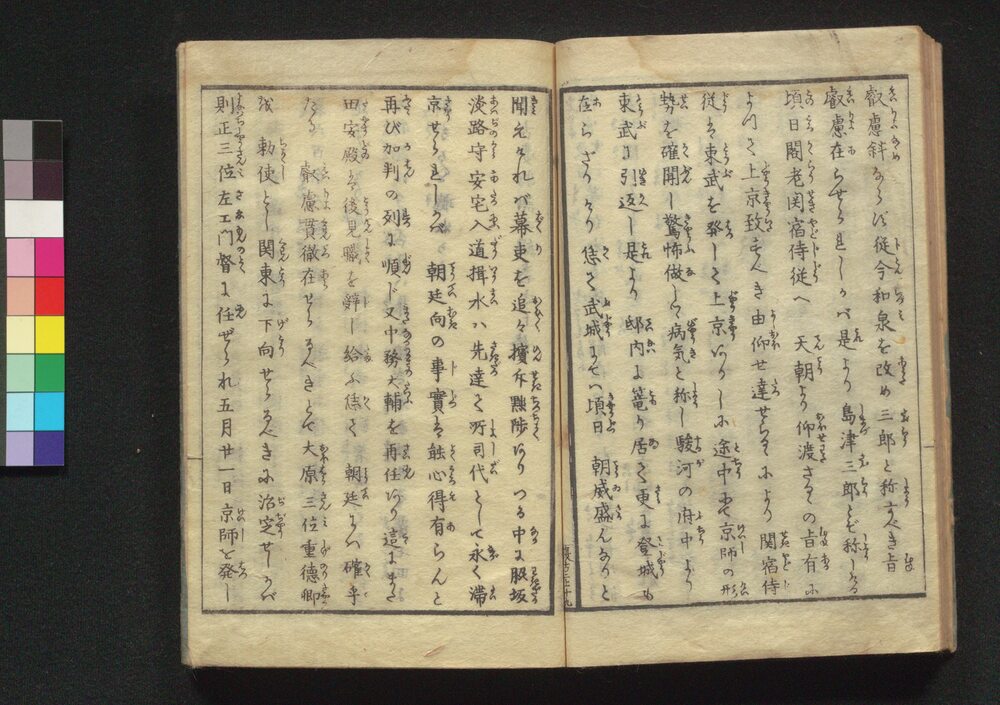 叡慮斜ならず従今和泉を改め三郎と称すべき旨
叡慮在らせられしかバ是より島津三郎とぞ称しける
頃日閣老関宿侍従へ　天朝より仰渡さるゝの旨有に
よつて上京致すべき由仰せ達せらるゝにより関宿侍
従ハ東武を発して上京ありしに途中にて京師の形
勢を確聞し驚怖做して病気と称し駿河の府中より
東武に引返し是より邸内に篭り居て更に登城も
在らざりけり　偖て武城にてハ頃日　朝威盛んなりと
聞えけれバ幕吏を追々擯斥黜陟あり　つる中に脇坂
淡路守安宅入道揖水ハ先達て所司代として永く滞
京せられしかバ　朝廷向の事實は能心得有らんと
再び加判の列に順じ又中務大輔を再任あり這にまた
田安殿ハ後見職を辞し給ふ偖て　朝廷にハ確乎
たる　叡慮貫徹在せらるべきとて大原三位重徳卿
を　勅使とし関東に下向せらるべきに治定せしかバ
則正三位左エ門督に任ぜられ五月廿一日京師を発し